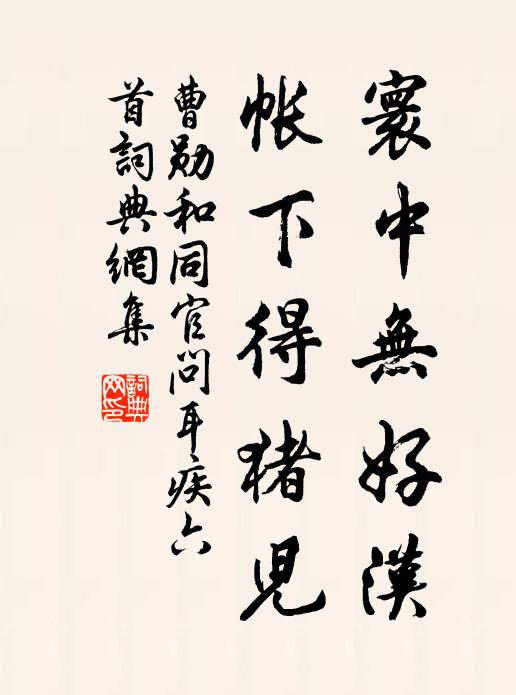 寰中無好漢
帳下得猪兒
曹勛和同官問耳疾六
首詞典網集
詞典
网印